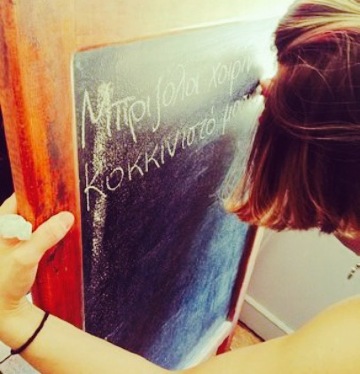 Μπριζόλα χοιρι
Κοκκινιστό μο